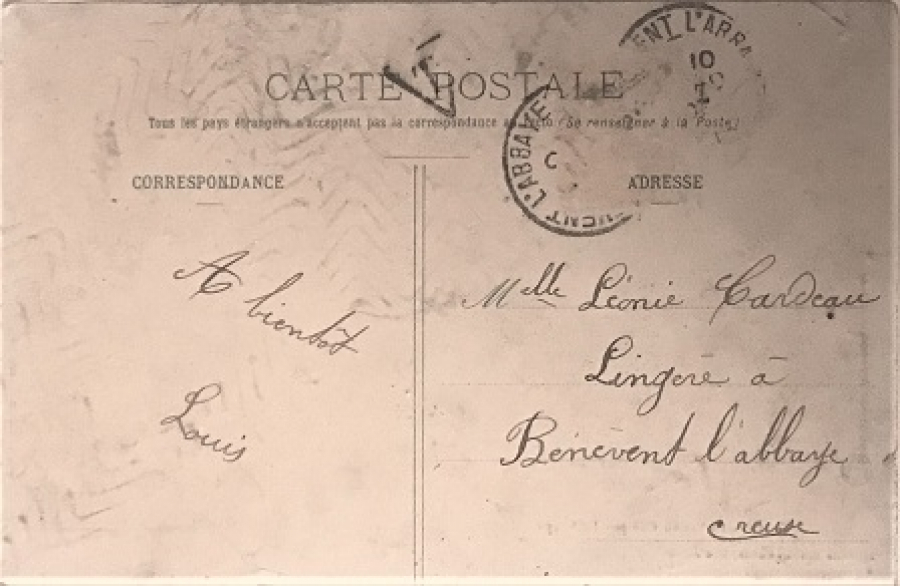 CARTE POSTALE
Tous les pays étrangers n'acceptent pas la correspondance au recto (Se renseigner à la Poste)
CORRESPONDANCE
ADRESSE
T
ENT L'ABBA
10
L'ABBAYE
C
A bientôt
Louis
Melle Léonie Cardeau
Lingère à
Bénévent l'abbaye
Creuse